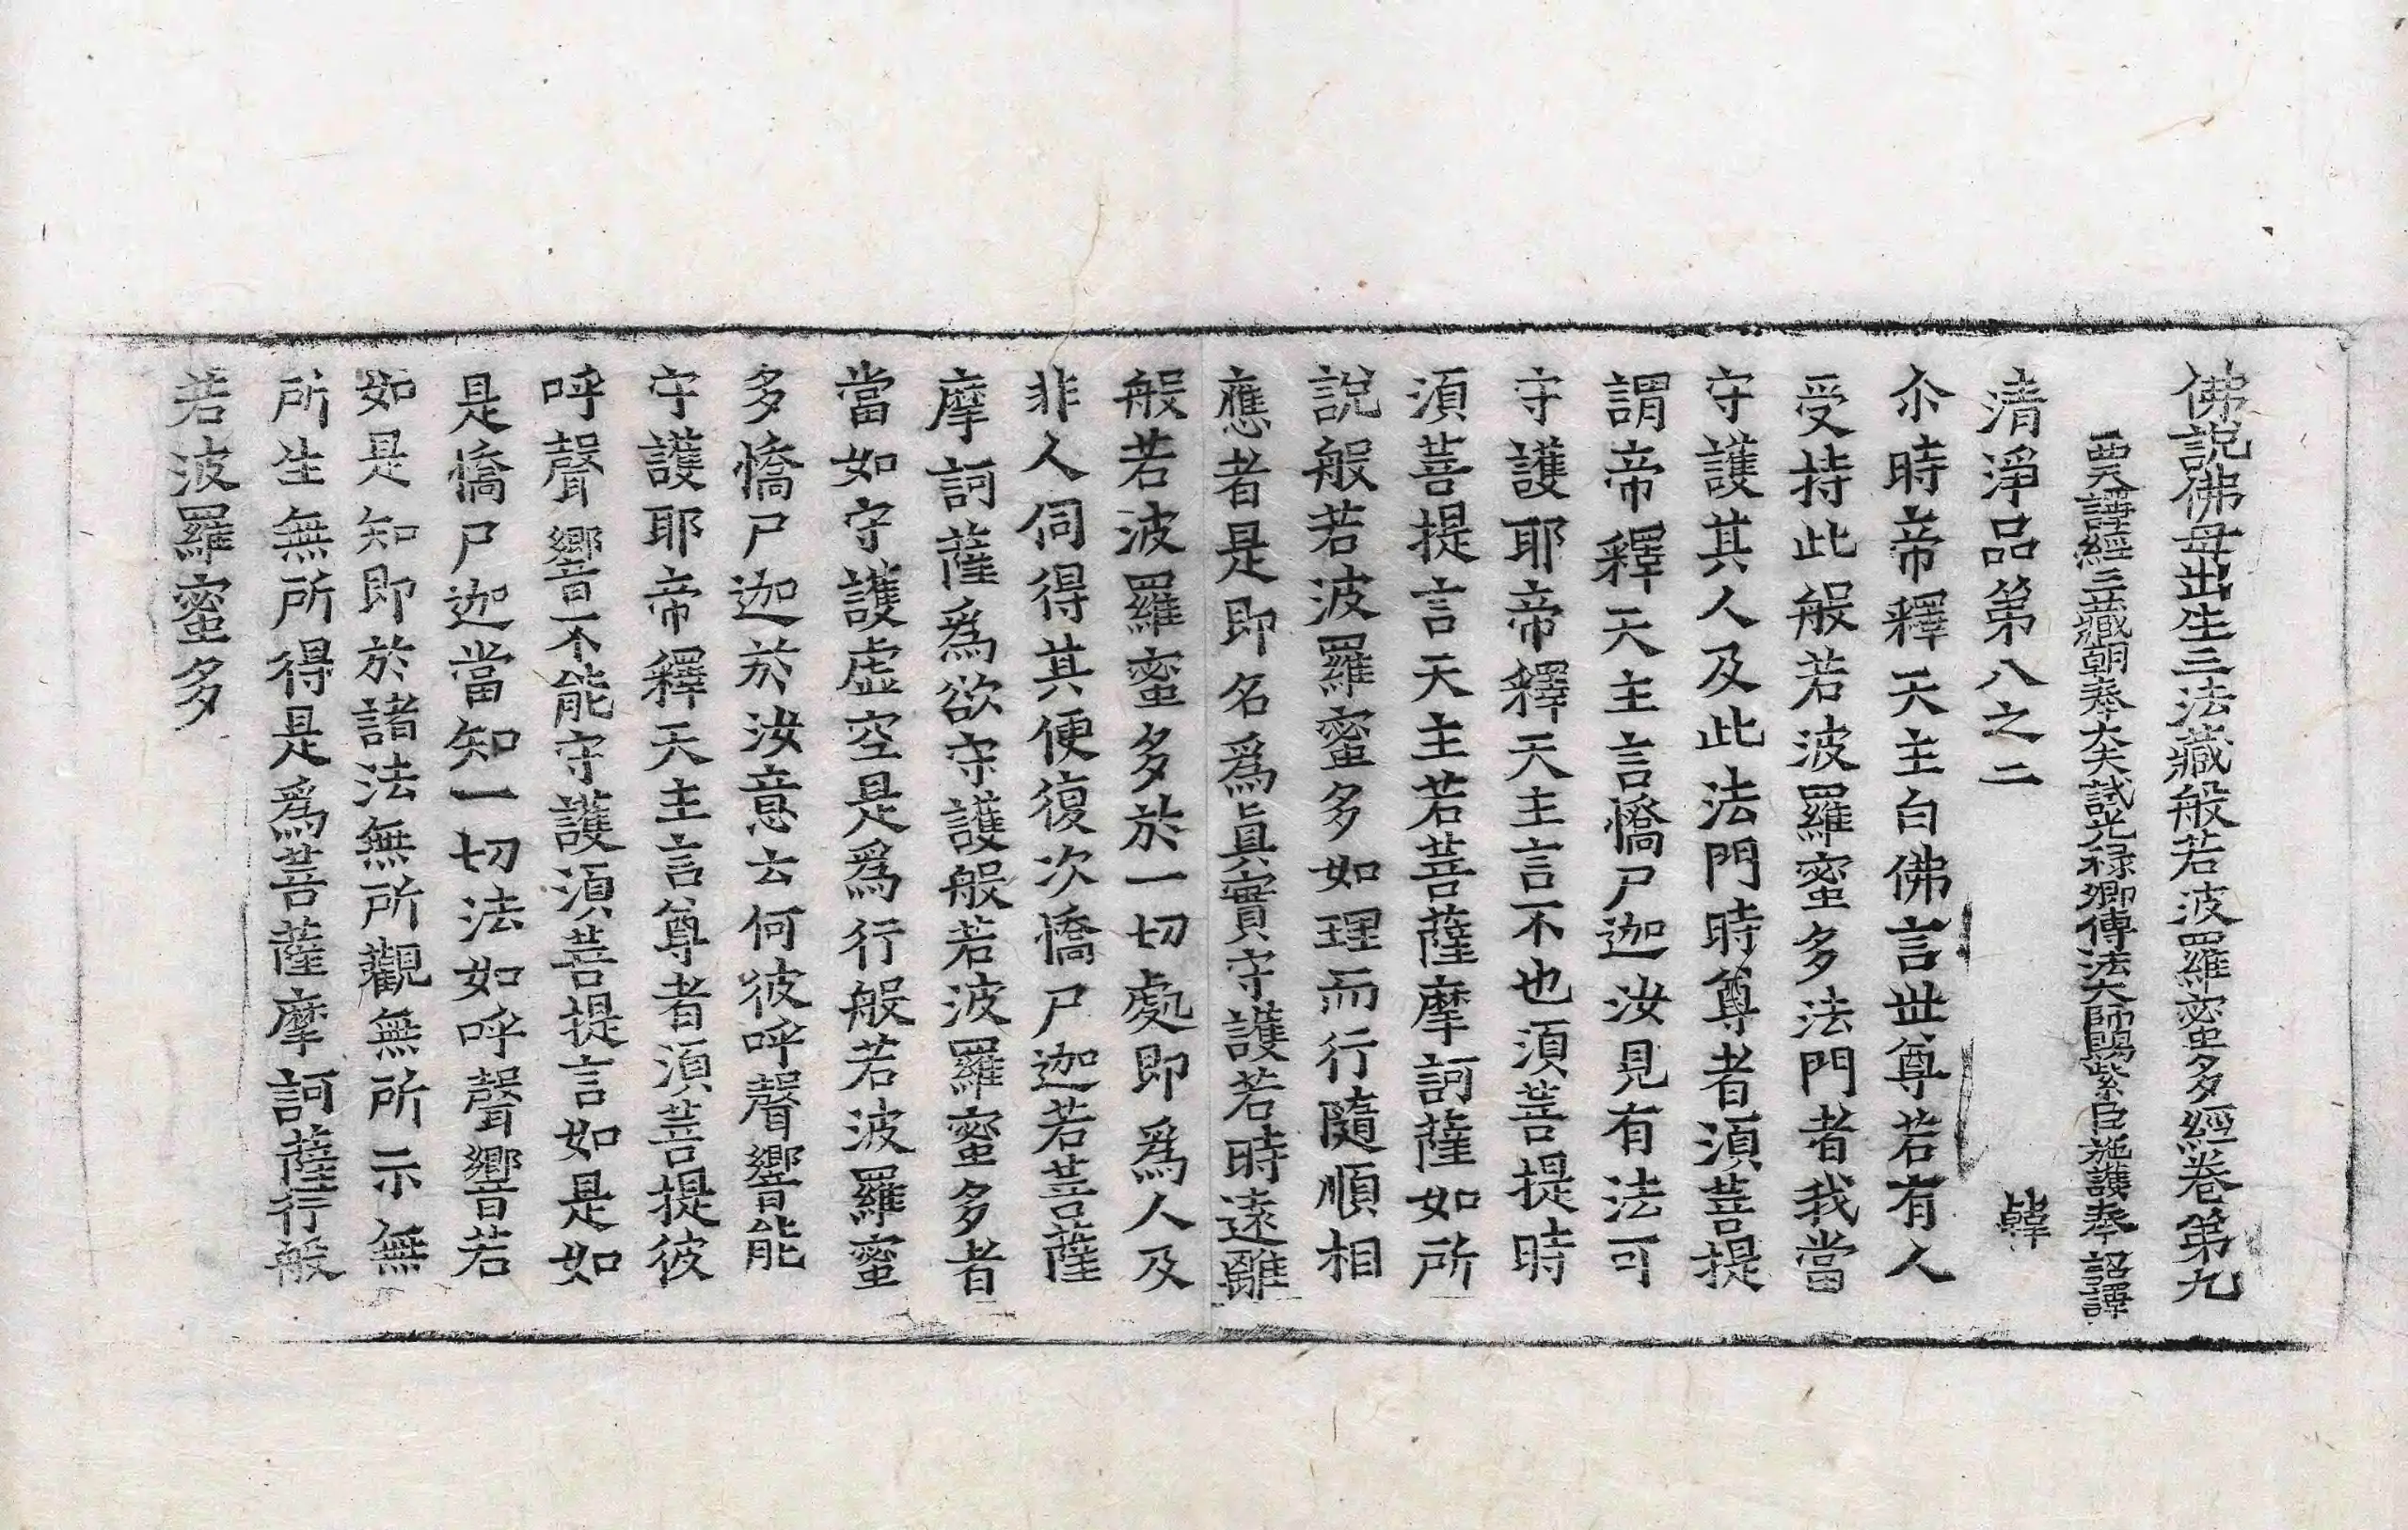 佛說佛母出生三法藏般若波羅蜜多經卷第九
西天譯經三藏朝奉大夫試光祿卿傳法大師賜紫臣施護奉 詔譯
清淨品第八之二 韓
尒時帝釋天主白佛言世尊若有人
受持此般若波羅蜜多法門者我當
守護其人及此法門時尊者須菩提
謂帝釋天主言憍尸迦汝見有法可
守護耶帝釋天主言不也須菩提時
須菩提言天主若菩薩摩訶薩如所
說般若波羅蜜多如理而行隨順相
應者是即名爲眞實守護若時遠離
般若波羅蜜多於一切處即爲人及
非人伺得其便復次憍尸迦若菩薩
摩訶薩爲欲守護般若波羅蜜多者
當如守護虛空是爲行般若波羅蜜
多憍尸迦於汝意云何彼呼聲響能
守護耶帝釋天主言尊者須菩提彼
呼聲響不能守護須菩提言如是如
是憍尸迦當知一切法如呼聲響若
如是知即於諸法無所觀無所示無
所生無所得是爲菩薩摩訶薩行般
若波羅蜜多